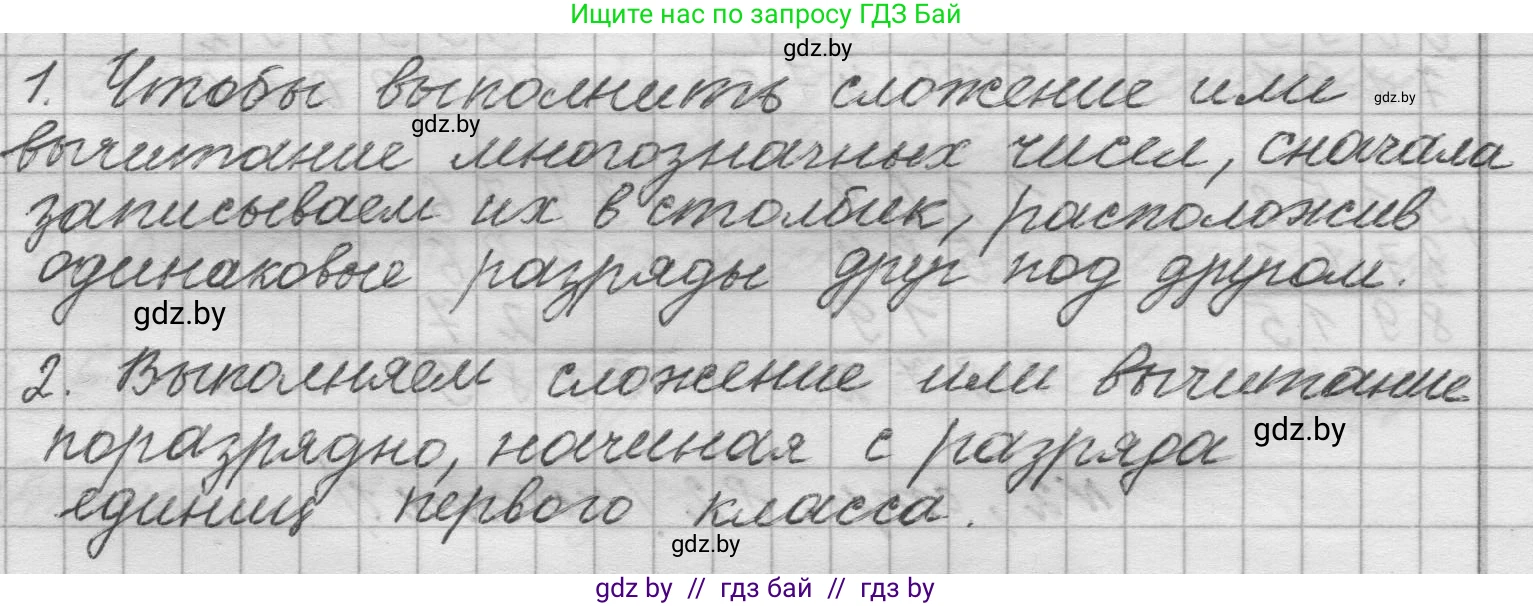 Ищите нас по запросу ГДЗ Бай
gdz.by
1. Чтобы выполнить сложение или
gdz.by
gdz.by
вычитание многозначных чисел, сначала
записываем их в столбик, расположив
одинаковые разряды друг под другом.
gdz.by
2. Выполняем сложение или вычитание
поразрядно, начиная с разряда
gdz.by
единиц первого класса.
gdz.by
gdz by // гдз бай // гдз by